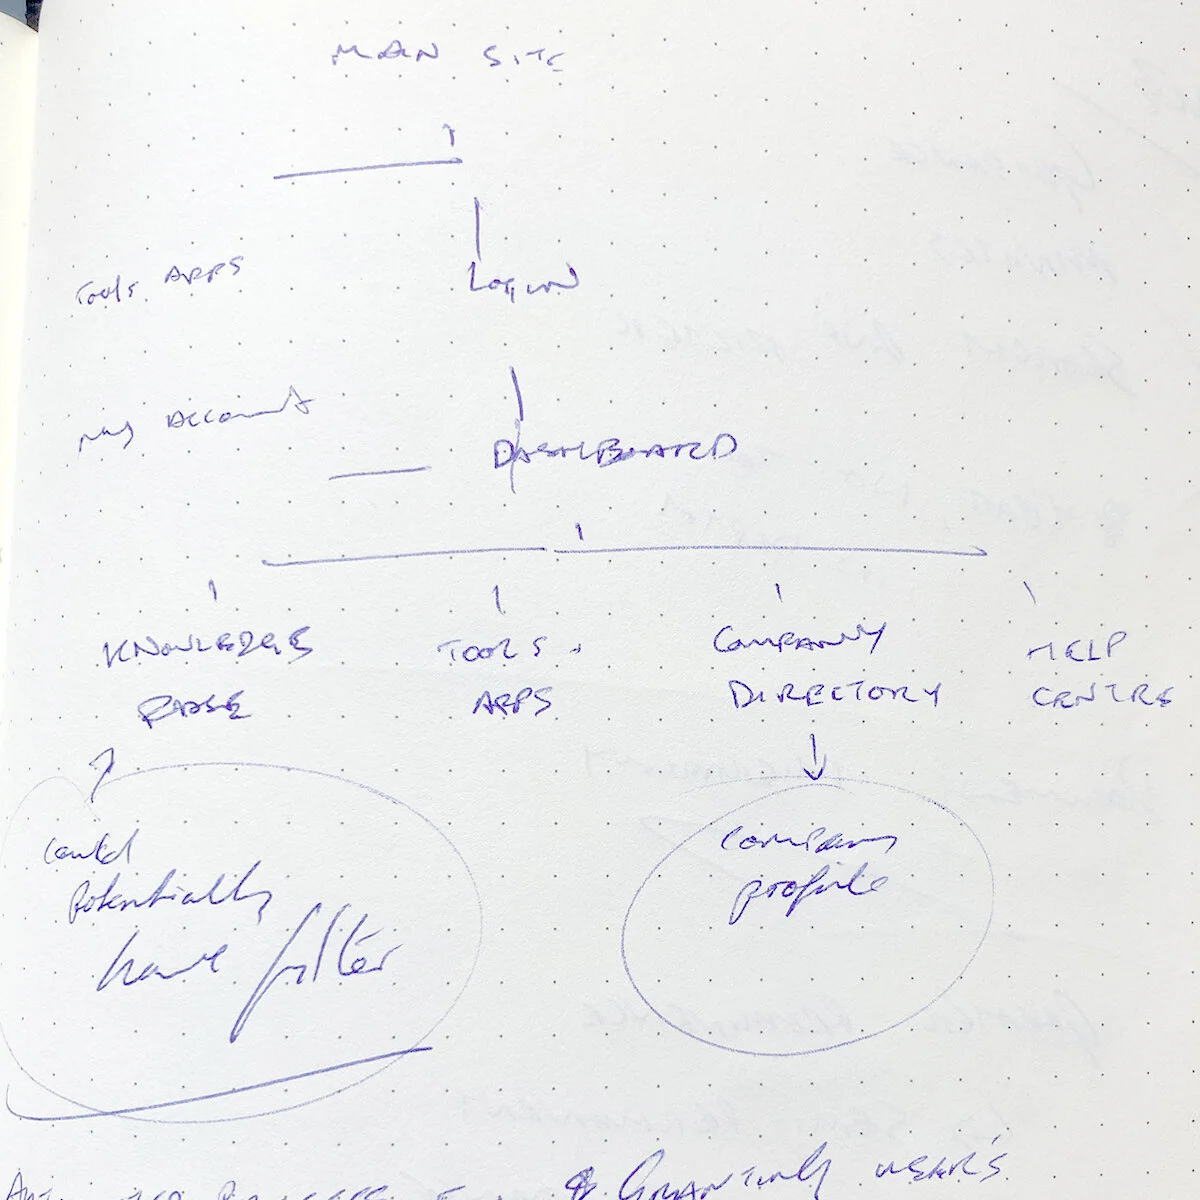 MAIN SITE
Tools APPS
LOGIN
My Account
DASHBOARD
KNOWLEDGE
BASE
TOOLS.
APPS
COMPANY
DIRECTORY
HELP
CENTRE
could
potentially
have filter
company
profile
& GRANTING USER'S